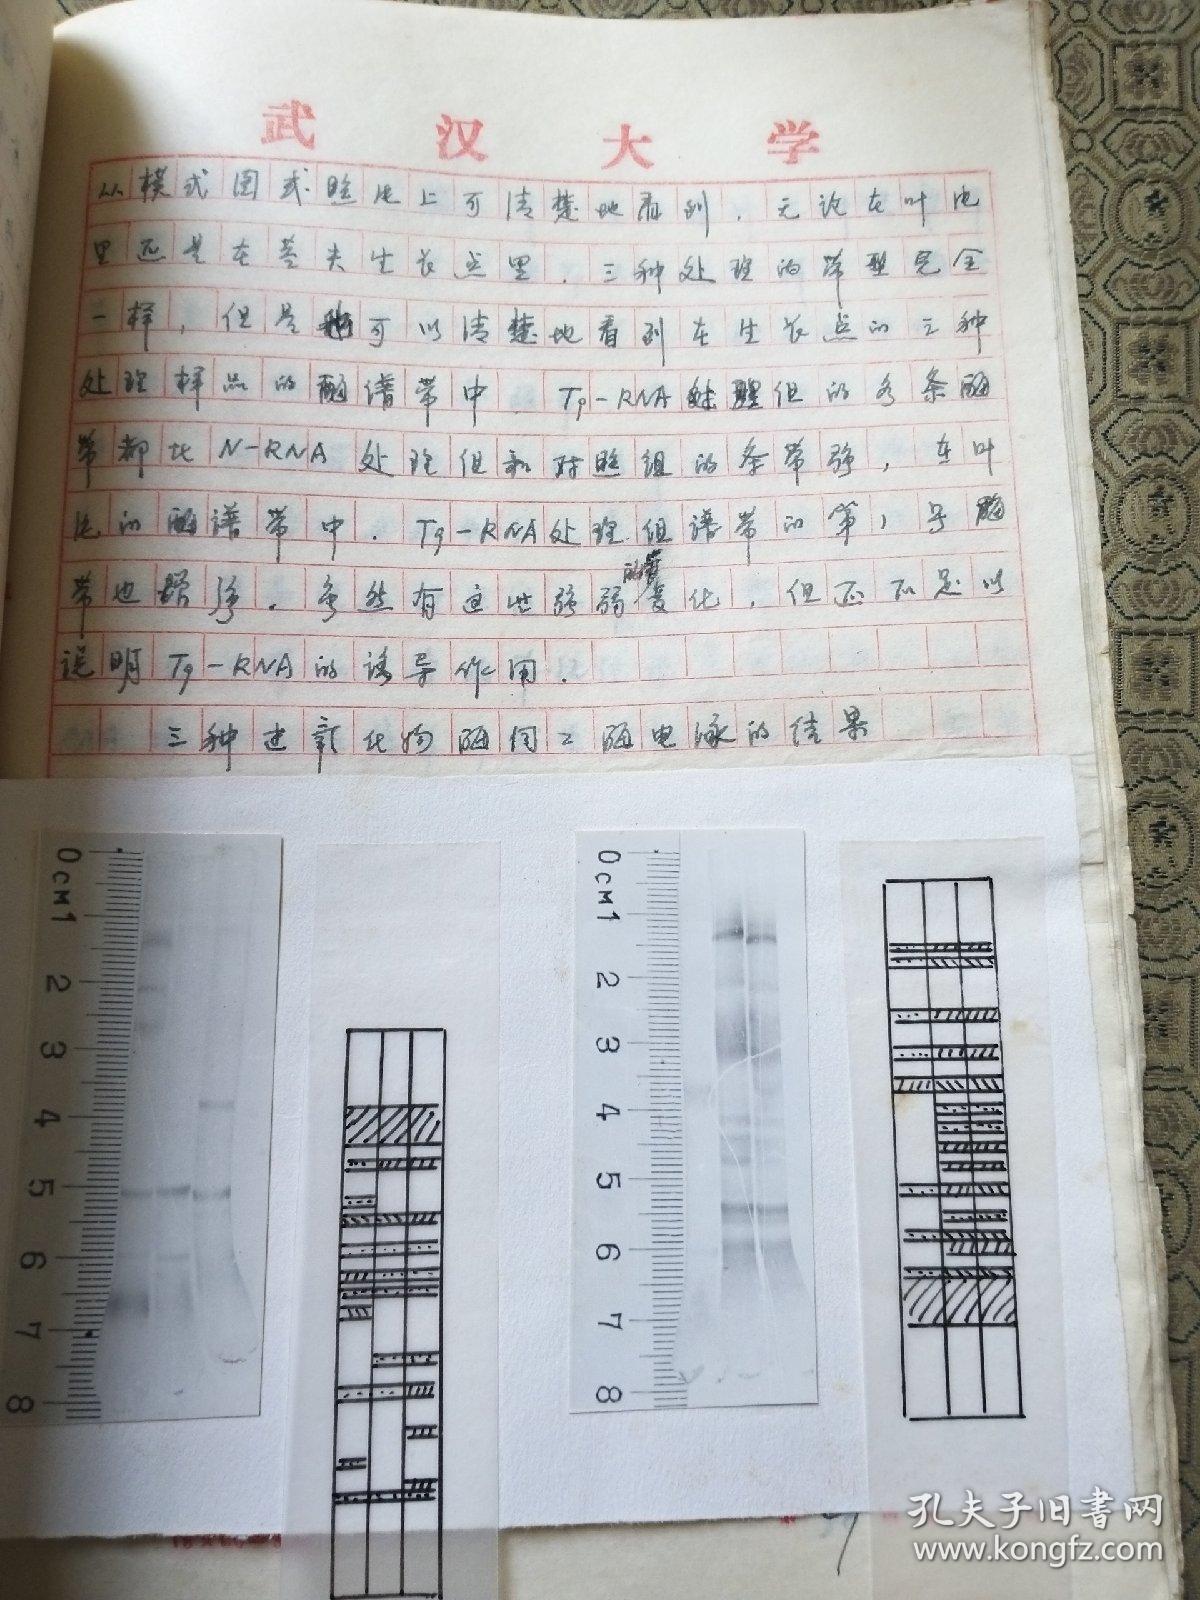 武汉大学
从模式图或照片上可清楚地看到，无论在叶片
里还是在茎尖生长点里，三种处理的带型完全
一样，但是可以清楚地看到在生长点的三种
处理样品的酶谱带中，Tq-RNA处理组的各条酶
带都比N-RNA处理组和对照组的条带强，在叶
片的酶谱带中，Tq-RNA处理组谱带的第1号酶
带也增强。虽然有这些强弱的变化，但还不足以
说明Tq-RNA的诱导作用.
三种过氧化物酶同工酶电泳的结果
0CM1 2 3 4 5 6 7 8
0CM1 2 3 4 5 6 7 8
孔夫子旧书网
www.kongfz.com